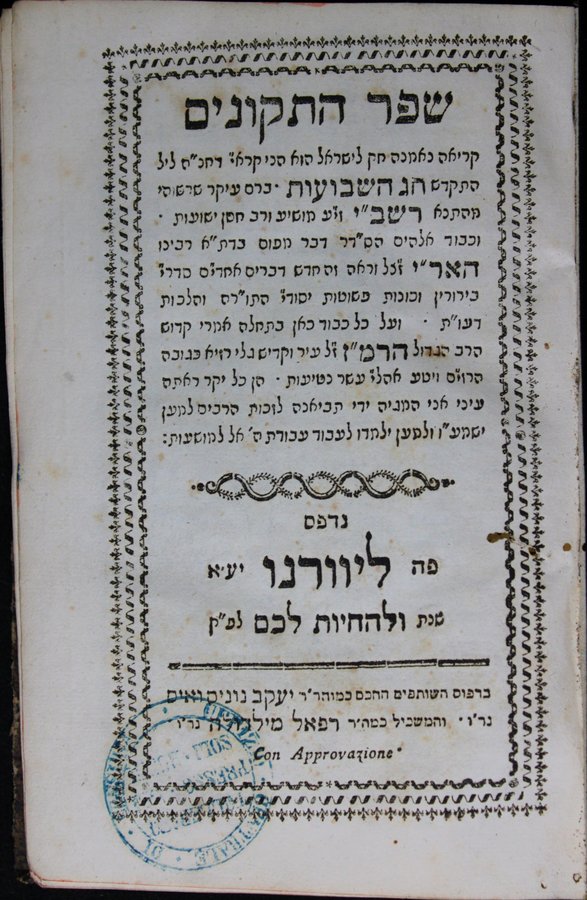 שפר התקונים
קריאה נאמנה חק לישראל הוא הכי קרא״ דתכ״ה ליל
התקדש חג השבועות · ברם עיקר שרשוהי
מהתנא רשב״י זי״ע מושיע ורב חסן ישועות ·
וכבוד אלהים הס״דר דבר מפום בדת״א רבינו
האר״י ז״כל וראה זה חדש דברים אחדי״ם הדר״
בירורין וכונות פשוטות יסודי התו״רה והלכות
דעו״ת · ועל כל כבוד כאן בתחלה אמרי קדוש
הרב הגדול הרמ״ז ז״ל עיר וקדיש גלי רזיא כגובה
הרזי״ם ויטע אהלי עשר נטיעות · הן כל יקר ראתה
עיני אני המגיה ידי תביאנה לזכות הרבים למען
ישמע״ו ולמען ילמדו לעבוד עבודת ה׳ אל למושעות :
נדפס
פה ליוורנו יע״א
שנת ולהחיות לכם לפ״ק
בדפוס השותפים החכם כמוהר״ר יעקב נוניס ואיס
נר״ו · והמשכיל כמה״ר רפאל מילדולה נר״ו
Con Approvazione ·